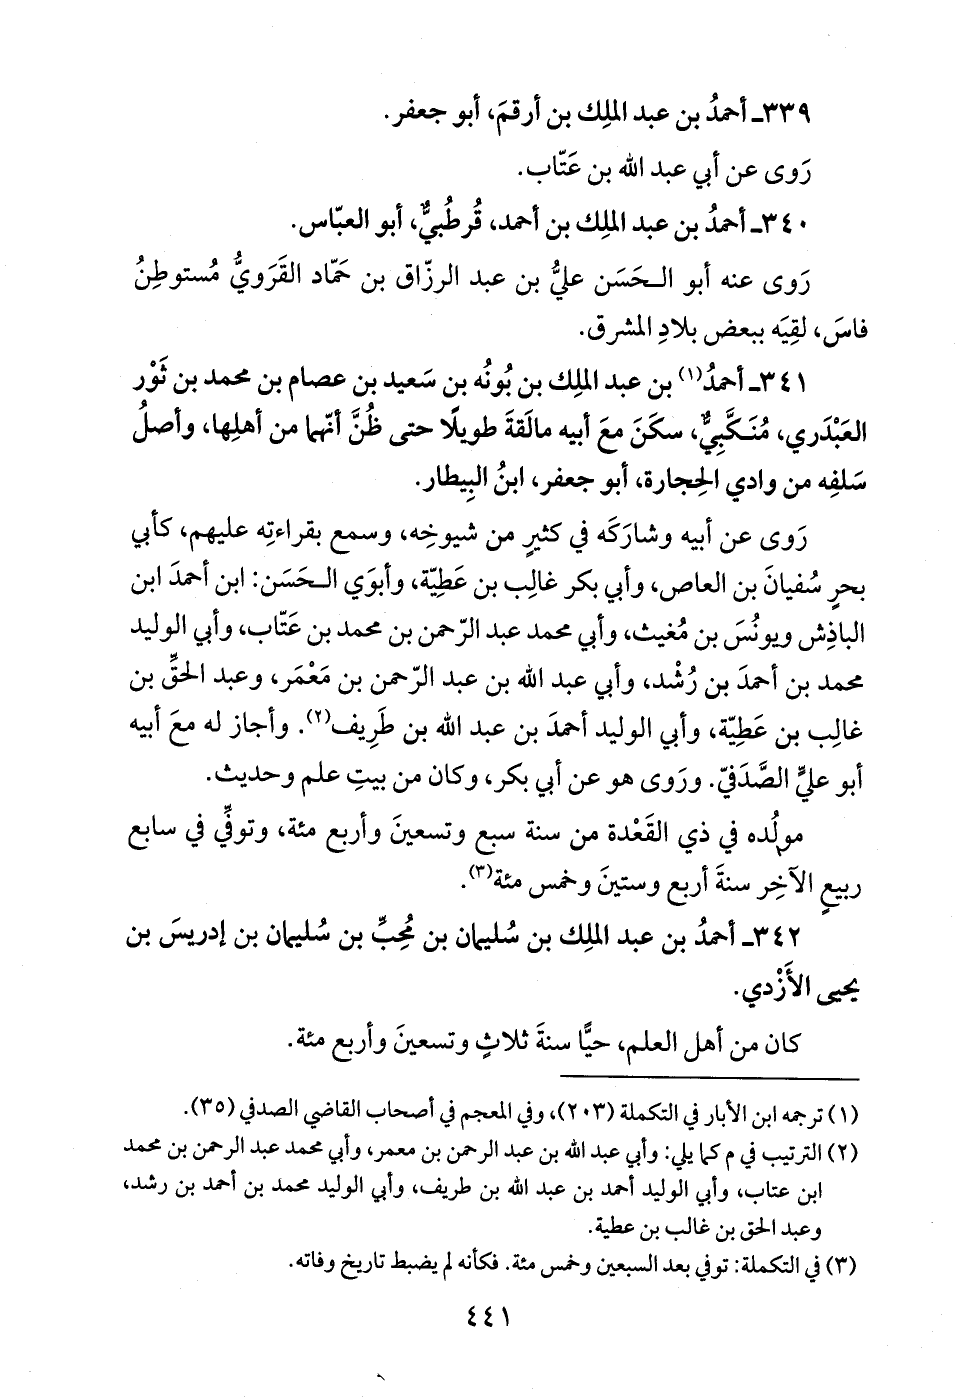 ٣٣٩ـ أحمدُ بن عبد الملِك بن أرقمَ، أبو جعفر.
رَوى عن أبي عبد الله بن عَتّاب.
٣٤٠ـ أحمدُ بن عبد الملِك بن أحمد، قُرطُبيٌّ، أبو العبّاس.
رَوى عنه أبو الـحَسَن عليُّ بن عبد الرزّاق بن حَمّاد القَرَويُّ مُستوطِنُ
فاسَ، لقِيَه ببعض بلادِ المشرق.
٣٤١ـ أحمدُ(١) بن عبد الملِك بن بُونُه بن سَعيد بن عصام بن محمد بن ثَوْر
العَبْدَري، مُنَكَّبيٌّ، سكَنَ معَ أبيه مالَقةَ طويلًا حتى ظُنَّ أنّهما من أهلِها، وأصلُ
سَلفِه من وادي الحِجارة، أبو جعفر، ابنُ البِيطار.
رَوى عن أبيه وشارَكَه في كثيرٍ من شيوخِه، وسمع بقراءتِه عليهم، كأبي
بحرٍ سُفيانَ بن العاص، وأبي بكر غالِب بن عَطِيّة، وأبوَي الـحَسَن: ابن أحمدَ ابن
الباذِش ويونُسَ بن مُغيث، وأبي محمد عبد الرّحمن بن محمد بن عَتّاب، وأبي الوليد
محمد بن أحمدَ بن رُشْد، وأبي عبد الله بن عبد الرّحمن بن مَعْمَر، وعبد الحقِّ بن
غالِب بن عَطِيّة، وأبي الوليد أحمدَ بن عبد الله بن طَرِيف(٢). وأجاز له معَ أبيه
أبو عليٍّ الصَّدَفيّ. ورَوى هو عن أبي بكر، وكان من بيتِ علم وحديث.
مولُده في ذي القَعْدة من سنة سبع وتسعينَ وأربع مئة، وتوفِّي في سابع
ربيعٍ الآخِر سنةَ أربع وستينَ وخمس مئة(٣).
٣٤٢ـ أحمدُ بن عبد الملِك بن سُليمان بن مُحِبِّ بن سُليمان بن إدريسَ بن
يحيى الأَزْدي.
كان من أهل العلم، حيًّا سنةَ ثلاثٍ وتسعينَ وأربع مئة.
(١) ترجمه ابن الأبار في التكملة (٢٠٣)، وفي المعجم في أصحاب القاضي الصدفي (٣٥).
(٢) الترتيب في م كما يلي: وأبي عبد الله بن عبد الرحمن بن معمر، وأبي محمد عبد الرحمن بن محمد
ابن عتاب، وأبي الوليد أحمد بن عبد الله بن طريف، وأبي الوليد محمد بن أحمد بن رشد،
وعبد الحق بن غالب بن عطية.
(٣) في التكملة: توفي بعد السبعين وخمس مئة. فكأنه لم يضبط تاريخ وفاته.
٤٤١